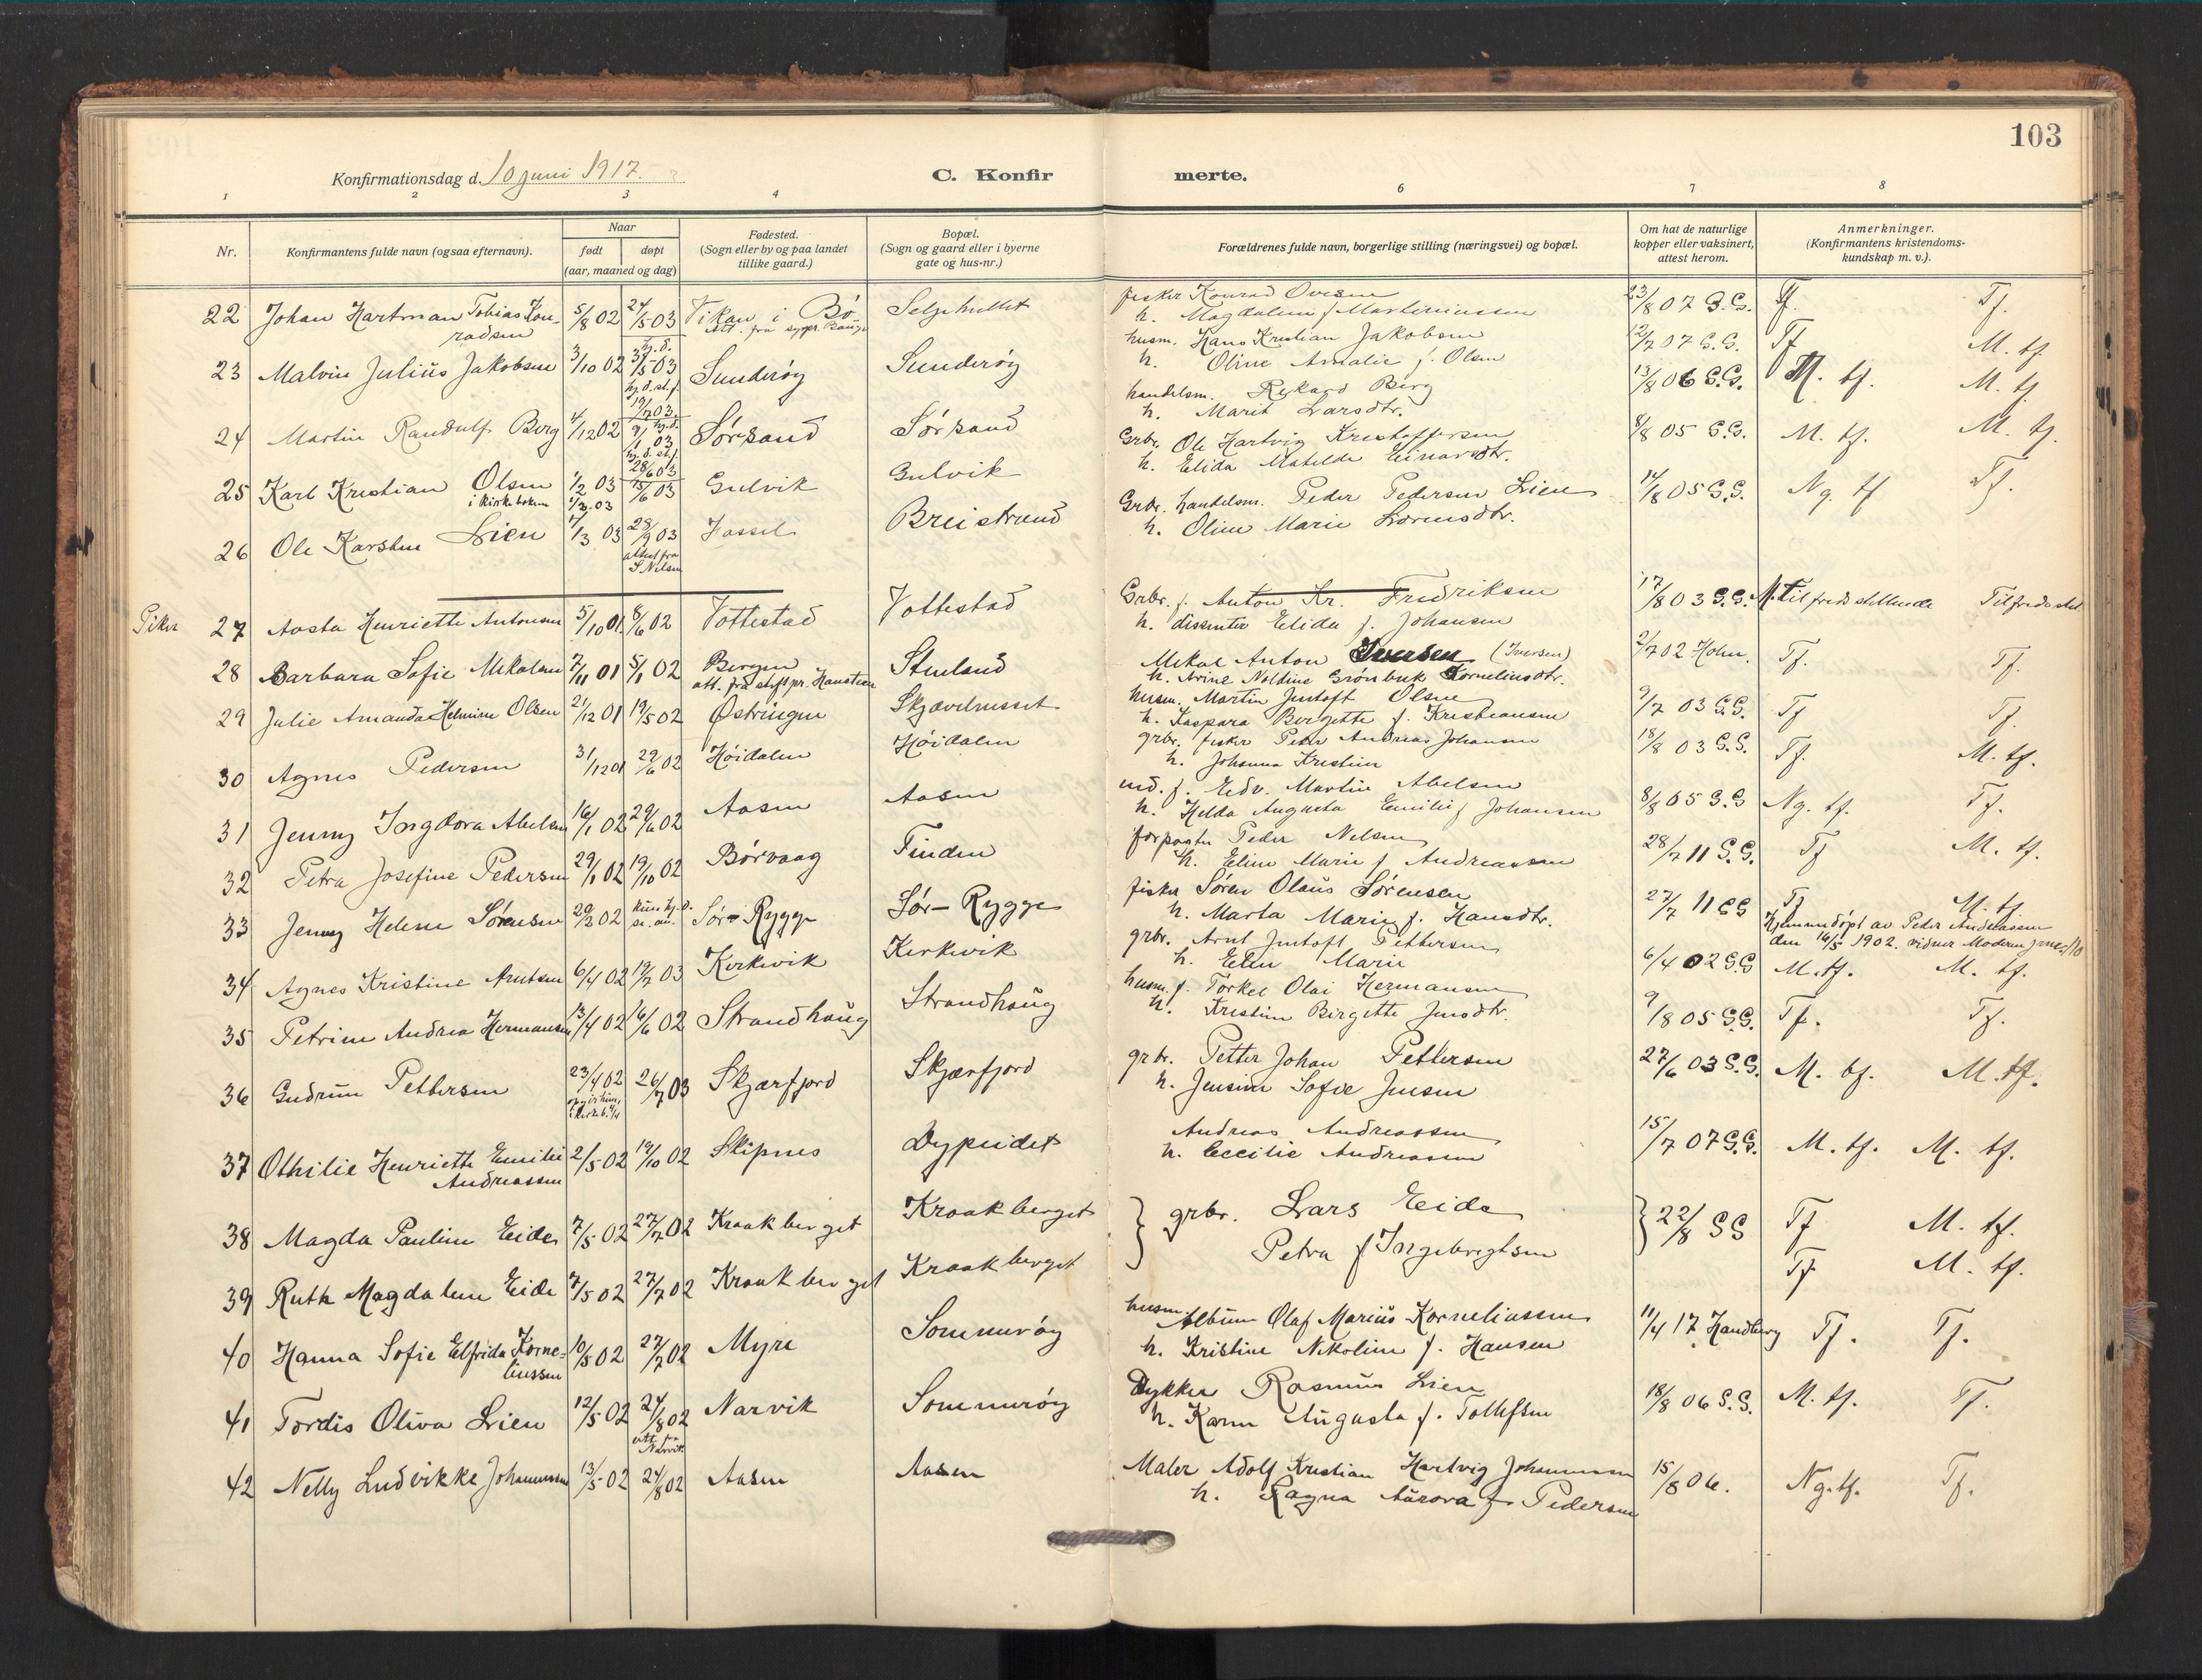 103
Konfirmationsdag d. 10 juni 1917.
C. Konfir merte.
1 2 3 4 6 7 8
Nr.
Konfirmantens fulde navn (ogsaa efternavn).
Naar
født døpt
(aar, maaned og dag)
Fødested.
(Sogn eller by og paa landet
tillike gaard.)
Bopæl.
(Sogn og gaard eller i byerne
gate og hus-nr.)
Forældrenes fulde navn, borgerlige stilling (næringsvei) og bopæl.
Om hat de naturlige
kopper eller vaksinert,
attest herom.
Anmerkninger.
(Konfirmantens kristendoms-
kundskap m. v.).
22 Johan Hartman Tobias Kon-
radsen
5/8 02 24/5 03 Vikan i Bø
fisker Konrad Ovesen
h. Magdalena f Martinussen
23/8 07 S.S. Tf. Tf.
23 Malvin Julius Jakobsen 3/10 02 31/5 03 Sunderøy Sunderøy
husm. Hans Kristian Jakobsen
h. Oline Amalie f. Olsen
12/7 07 S.S. Tf M. tf
24 Martin Randulf Berg 4/12 02 Sørsand Sørsand
handelsm. Rikard Berg
h. Marit Larsdtr.
13/8 06 S.S. M. tf. M. tf
25 Karl Kristian Olsen 1/2 03 15/6 03 Gulvik Gulvik
i kirkeboken 1/3.03
Grbr. Ole Hartvig Kristoffersen
h. Elida Matilde Einarsdtr.
8/8 05 S.S. M. tf. M. tf.
26 Ole Karsten Lien 17/3 03 28/9 03 Jassel Breistrand
attest fra
S Nilsen
Grbr. handelsm. Peder Pedersen Lien
h. Oline Marie Lorensdtr.
14/8 05 S.S. Ng. tf Tf.
Piker
27 Aasta Henriette Antonsen 5/10 01 8/6 02 Vottestad Vottestad
Grbr. f. Anton Kr. Fredriksen
h. dissenter Elida f. Johansen
17/8 03 S.S. M. Tilfredsstillende Tilfredsstil
28 Barbara Sofie Mikalsen 7/11 01 5/1 02 Bergen Stenland
Mikal Anton Iversen (Iversen)
h. Arine Noldine Grønbuk Kornelinsdtr.
2/7 02 Holm. Tf. Tf.
29 Julie Amanda Helmine Olsen 21/12 01 19/5 02 Østringen Skjævelnesset
husm. Martin Jentoft Olsen
h. Kaspara Bergette f. Kristiansen
9/7 03 S.S. Tf Tf.
30 Agnes Pedersen 31/12 01 29/6 02 Høidalen Høidalen
grbr. fisker Peder Andreas Johansen
h. Johanna Kristine
18/8 03 S.S. Tf. M. tf.
31 Jenny Ingdora Abelsen 16/1 02 29/6 02 Aasen Aasen
ind. f. Edv. Martin Abelsen
h. Helda Augusta Emilie f Johansen
8/8 05 S.S Ng. tf. Tf.
32 Petra Josefine Pedersen 29/1 02 19/10 02 Børvaag Finden
forpagter Peder Nelsen
h. Eline Marie f Andreassen
28/7 11 S.S. Tf M. tf.
33 Jenny Helene Sørensen 20/3 02 kun hj.d. se an. Sør-Rygge Sør-Rygge
fisker Søren Olaus Sørensen
h. Marta Marie f. Hansdtr.
27/7 11 SS Tf M. tf
Hjemmedøpt av Peder Andreassen
den 16/5 1902. vidner Moderen
34 Agnes Kristine Arntsen 6/4 02 19/7 03 Kirkevik Kirkevik
grbr. Arnt Jentoft Pettersen
h. Elen Marie
6/4 02 S.S M. tf. M. tf.
35 Petrine Andrea Hermansen 13/4 02 16/6 02 Strandhaug Strandhaug
husm. f. Torkel Olai Hermansen
h. Kristine Birgitte Jensdtr.
9/8 05 S.S. Tf. Tf.
36 Gudrun Pettersen 23/4 02 26/7 03 Skjærfjord Skjærfjord
grbr. Petter Johan Pettersen
h. Jensine Sofie Jensen
27/6 03 S.S. M. tf. M. tf.
37 Othilie Henriette Emilie
Andreassen
2/5 02 19/10 02 Skipnes Dypeidet
Andreas Andreassen
h. Cecilie Andreassen
15/7 07 S.S. M. tf. M. tf.
38 Magda Pauline Eide 7/5 02 27/7 02 Kraakberget Kraakberget
grbr. Lars Eide
Petra f Ingebrigtsen
22/8 SS Tf M. tf.
39 Ruth Magdalene Eide 7/5 02 27/7 02 Kraakberget Kraakberget
Tf M. tf.
40 Hanna Sofie Elfrida Korne-
liussen
10/5 02 27/7 02 Myre Sommerøy
husm. Album Olaf Marius Korneliussen
h. Kristine Nikoline f. Hansen
11/4 17 Handberg Tf. Tf.
41 Tordis Oliva Lien 12/5 02 24/8 02 Narvik Sommerøy
att. fra
Narvik
Dykker Rasmus Lien
h. Karen Augusta f. Tollefsen
18/8 06 S.S. M. tf. Tf.
42 Nelly Ludvikke Johannessen 13/5 02 24/8 02 Aasen Aasen
Maler Adolf Kristian Hartvig Johannessen
h. Ragna Aurora f Pedersen
15/8 06. Ng. tf. Tf.